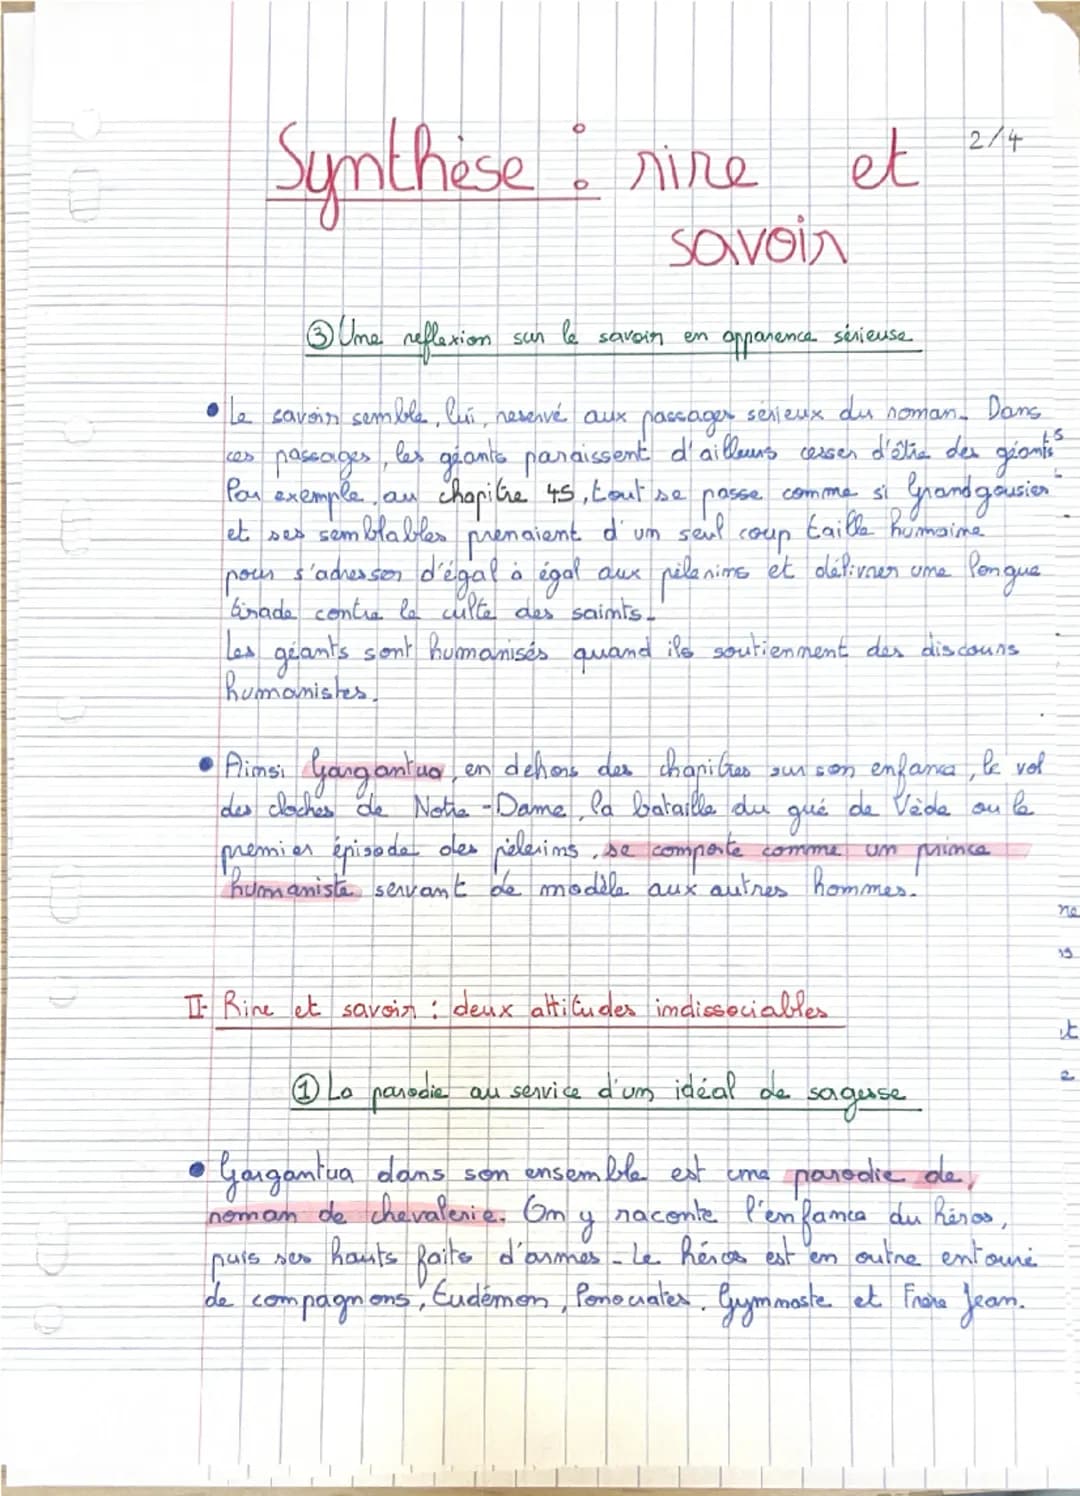 2/4
Synthèse : rire et
savoir
③ Une reflexion sur le savoir en apparence sérieuse
• Le savoir semble, lui, reservé aux passages sérieux du roman. Dans
ces passages, les géants paraissent d'ailleurs cesser d'être des géants
Par exemple, au chapitre 45, tout se passe comme si Grandgousier
et ses semblables prenaient d'un seul coup taille humaine
pour s'adresser d'égal à égal aux pélerins et délivrer une longue
tirade contre le culte des saints.
Les géants sont humanisés quand ils soutiennent des discours
humanistes.
• Ainsi Gargantua, en dehors des chapitres sur son enfance, le vol
des cloches de Notre-Dame, la bataille du gué de Vède ou le
premier épisode des pèlerins, se comporte comme un prince
humaniste servant de modèle aux autres hommes.
II- Rire et savoir : deux attitudes indissociables
① La parodie au service d'un idéal de sagesse
• Gargantua dans son ensemble est une parodie de
roman de chevalerie. On y raconte l'enfance du héros,
puis ses hauts faits d'armes. Le héros est en outre entouré
de compagnons, Eudémon, Ponocrates, Gymnaste et Frère Jean.